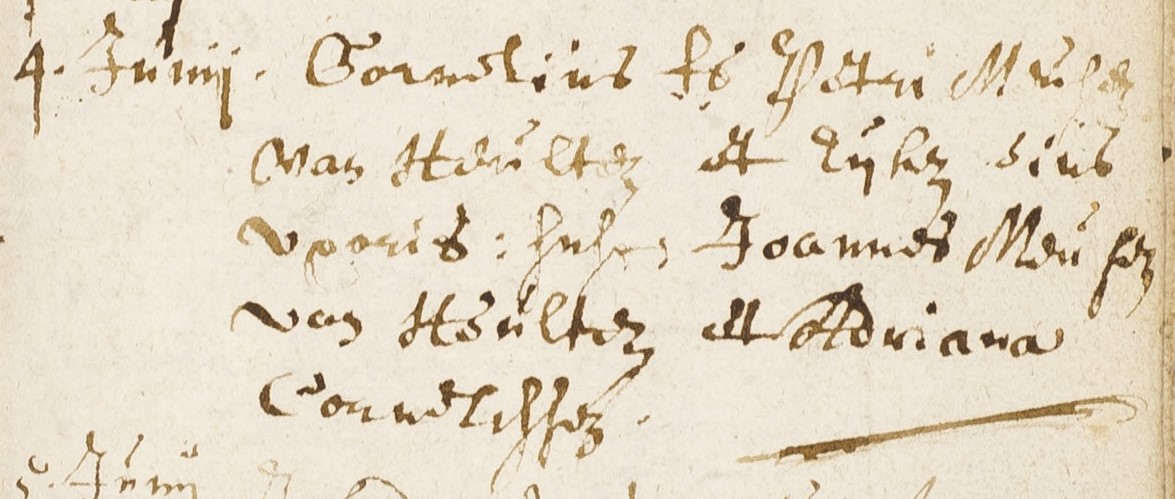 4. Junij. Cornelius fs Petri Meusen
van Heulten et Lijken eius
uxoris: susc: Joannes Meusen
van Heulten et Adriana
Cornelissen.
5. Junij